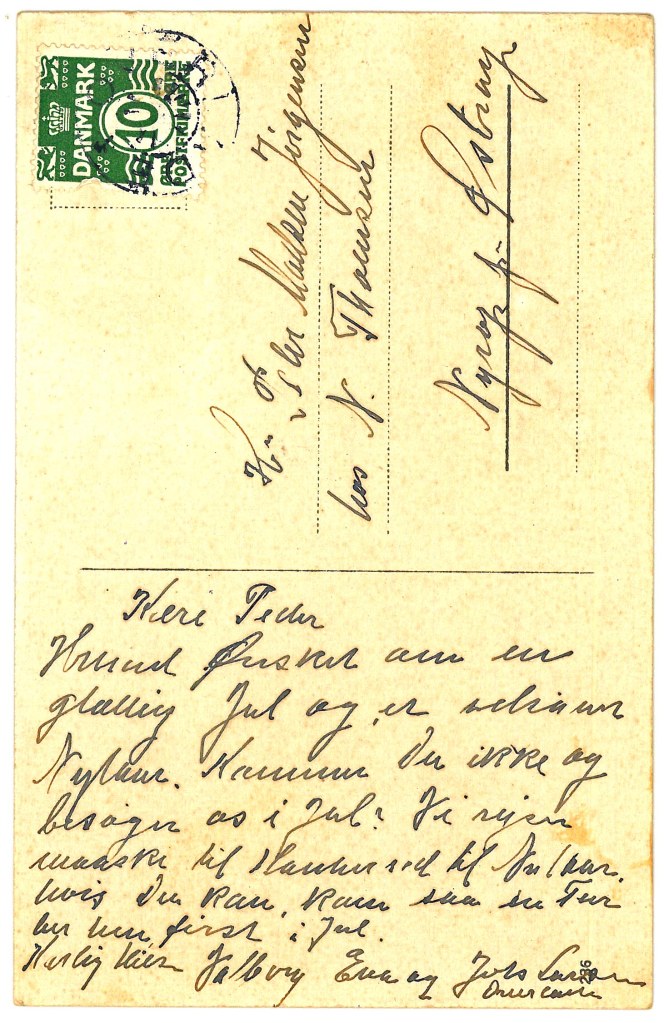 DANMARK
10
POSTFRIMÆRKE
Hr. Peder Madsen Jørgensen
hos N. Thomsen
Nyrop pr Østrup
Kære Peder
Hermed Ønsket om en
glædelig Jul og et velsignet
Nytaar. Kommer Du ikke og
besøger os i Jul? Vi rejser
maaske til til Nytaar,
hvis Du kan, kom saa en Tur
her hen først i Jul.
Kærlig Hilsen Valborg Eva og Jens Larsen
236